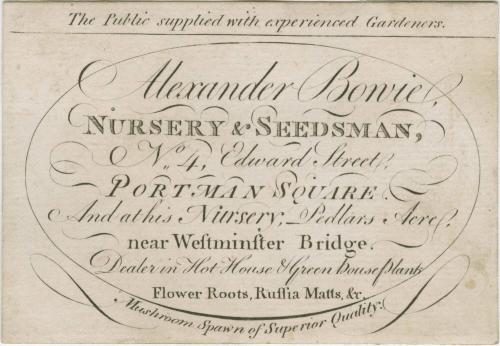 The Public supplied with experienced Gardeners.
Alexander Bowie,
NURSERY & SEEDSMAN,
No. 4, Edward Street,
PORTMAN SQUARE.
And at his Nursery, Pedlars Acre,
near Weſtminſter Bridge.
Dealer in Hot House & Green house Plants
Flower Roots, Ruſſia Matts, &c.
Mushroom Spawn of Superior Quality.